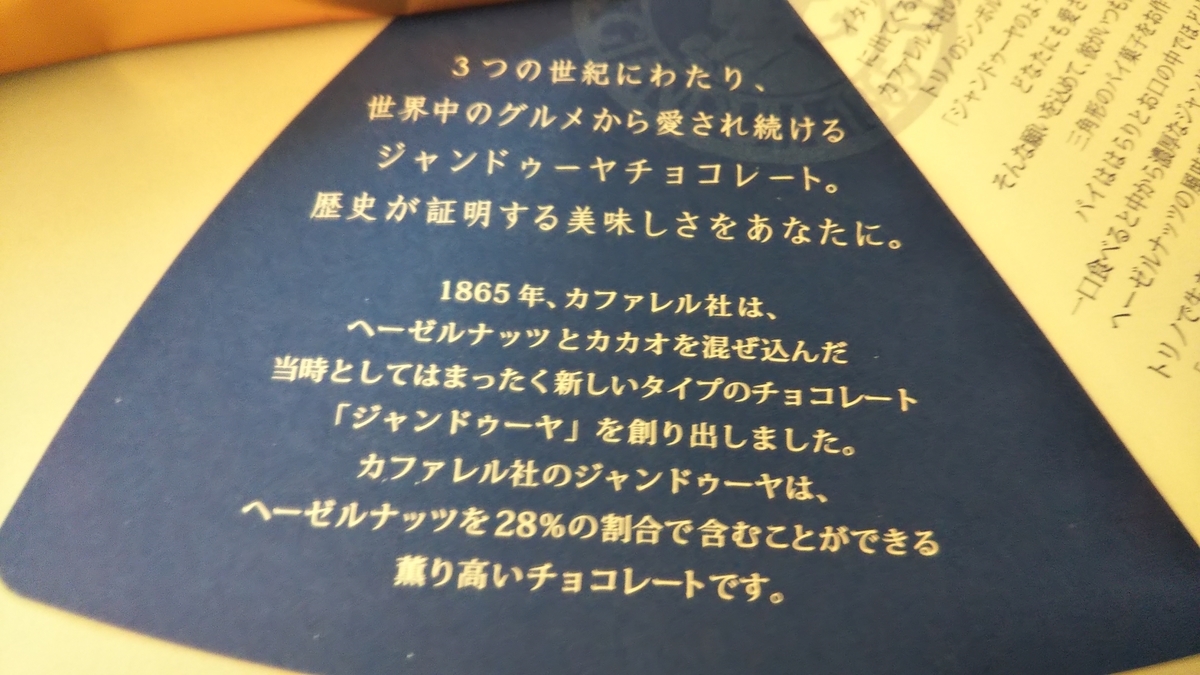 3つの世紀にわたり、
世界中のグルメから愛され続ける
ジャンドゥーヤチョコレート。
歴史が証明する美味しさをあなたに。
1865年、カファレル社は、
ヘーゼルナッツとカカオを混ぜ込んだ
当時としてはまったく新しいタイプのチョコレート
「ジャンドゥーヤ」を創り出しました。
カファレル社のジャンドゥーヤは、
ヘーゼルナッツを28%の割合で含むことができる
薫り高いチョコレートです。
カファレル本社
トリノのシンボル
「ジャンドゥーヤのよ
どなたにも愛さ
そんな願いを込めて、彼がいつも
三角形のパイ菓子をお作
パイははらりとお口の中でほど
一口食べると中から濃厚なジャン
ヘーゼルナッツの風
トリノで生